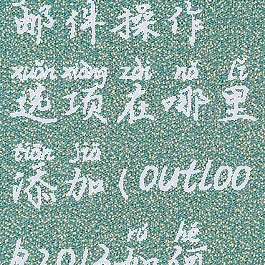 邮件操作
xuǎn xiàng zài nǎ lǐ
选项在哪里
tiān jiā
添加(outloo
rú hé
2013如何